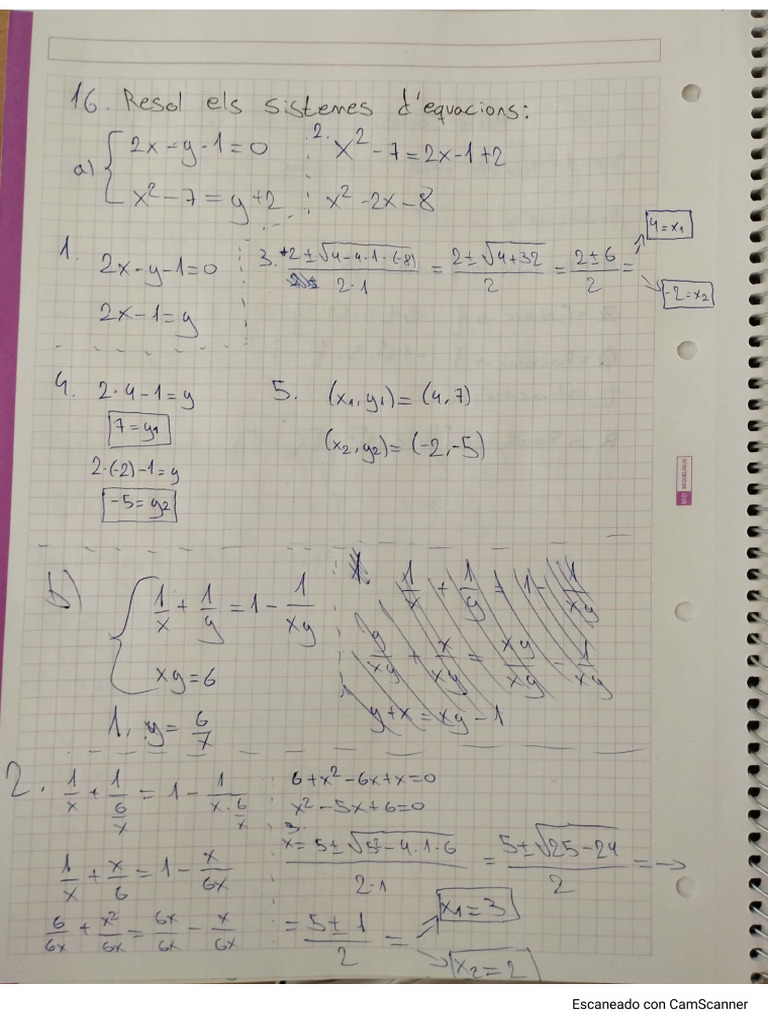 16. Resol els sistemes d'equacions:
a) { 2x - y - 1 = 0
x² - 7 = y + 2
2. x² - 7 = 2x - 1 + 2
x² - 2x - 8
1. 2x - y - 1 = 0
2x - 1 = y
3. +2 ± √(4 - 4·1·(-8)) / 2·1 = 2 ± √(4 + 32) / 2 = 2 ± 6 / 2 =
4 = x₁
-2 = x₂
4. 2·4 - 1 = y
7 = y₁
2·(-2) - 1 = y
-5 = y₂
5. (x₁, y₁) = (4, 7)
(x₂, y₂) = (-2, -5)
b) { 1/x + 1/y = 1 - 1/xy
xy = 6
1/x + 1/y = 1 - 1/xy
y/xy + x/xy = xy/xy - 1/xy
y + x = xy - 1
1. y = 6/x
2. 1/x + 1/(6/x) = 1 - 1/(x·6/x)
1/x + x/6 = 1 - x/6x
6/6x + x²/6x = 6x/6x - x/6x
6 + x² - 6x + x = 0
x² - 5x + 6 = 0
3. x = 5 ± √(5² - 4·1·6) / 2·1 = 5 ± √(25 - 24) / 2 = →
= 5 ± 1 / 2 =
x₁ = 3
x₂ = 2
MIQUELRIUS
Escaneado con CamScanner